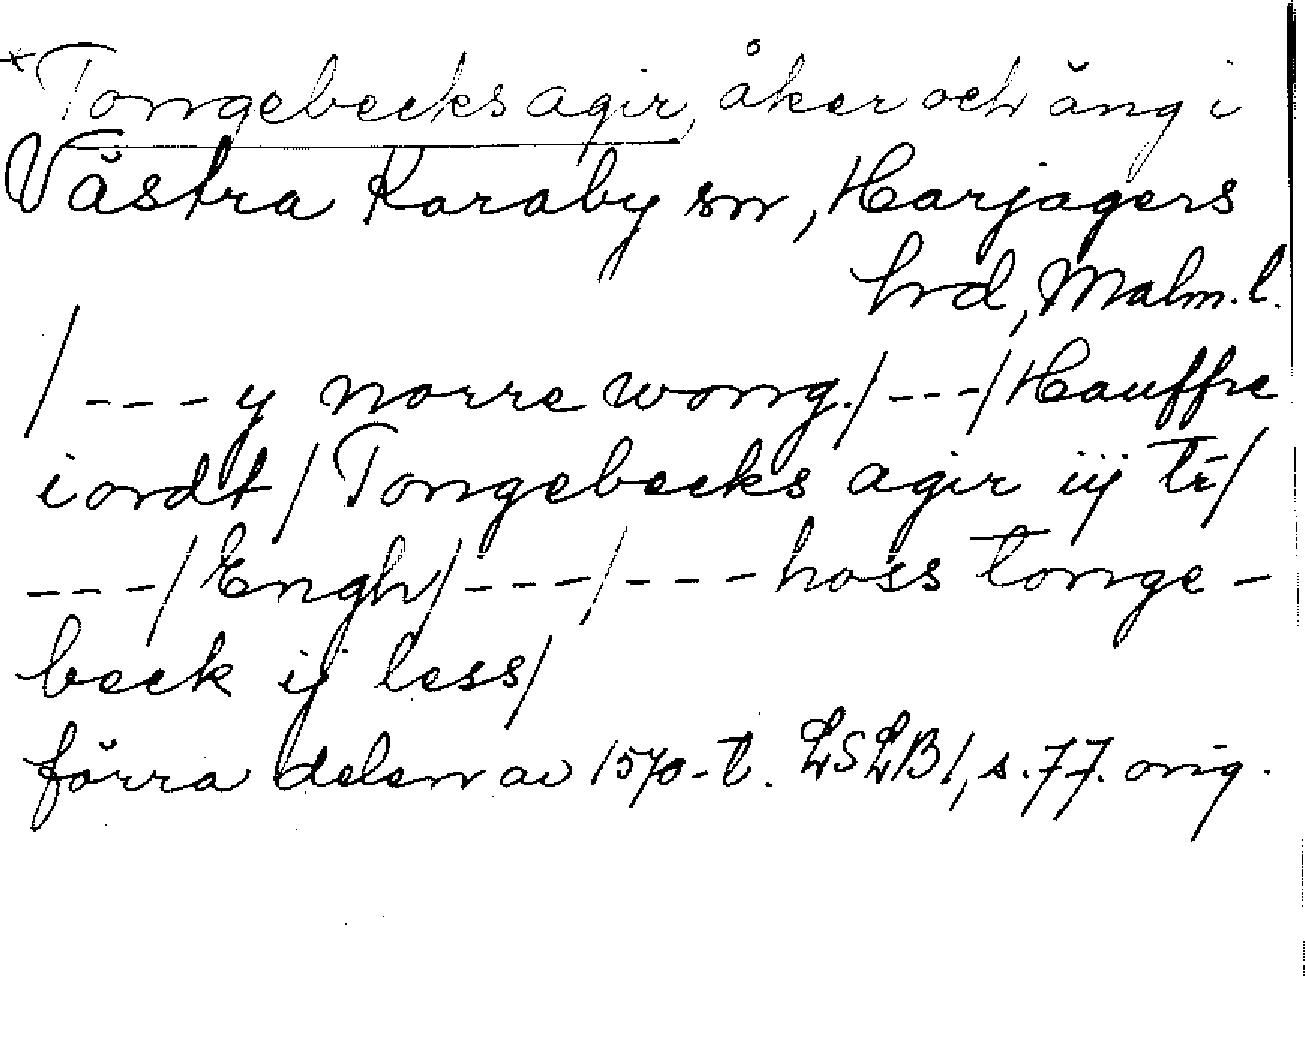 *Tongebecks agir, åker och äng i
Västra Karaby sn, Harjagers
hrd, Malm. l.
/---y norre wong./---/Hauffue
iordt/Tongebecks agir iij tr/
---/Engh/---/---hoss tonge-
beck ij less/
förra delen av 1570-t. LSLB1, s. 77. orig.